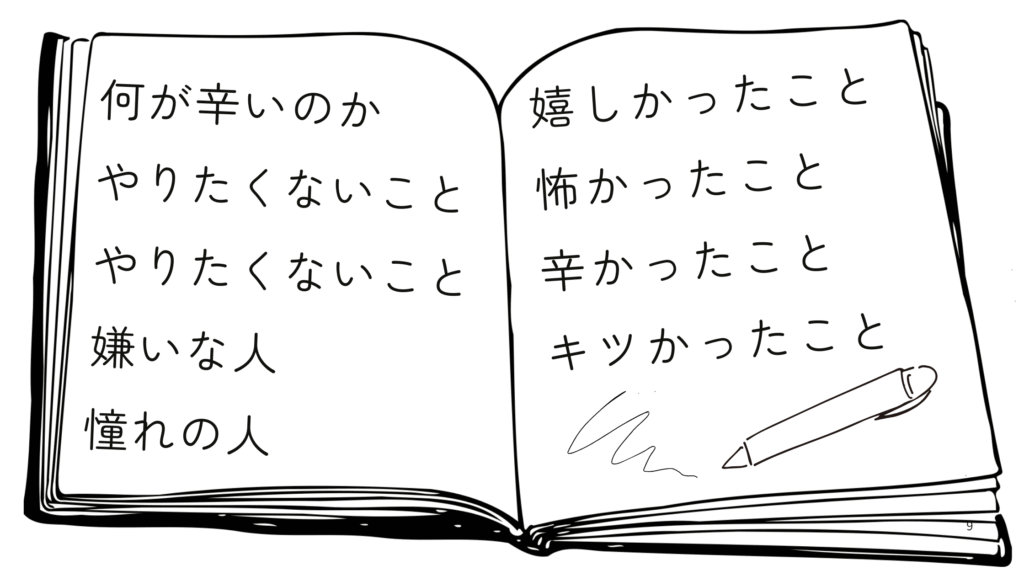 何が辛いのか
やりたくないこと
やりたくないこと
嫌いな人
憧れの人
嬉しかったこと
怖かったこと
辛かったこと
キツかったこと
9